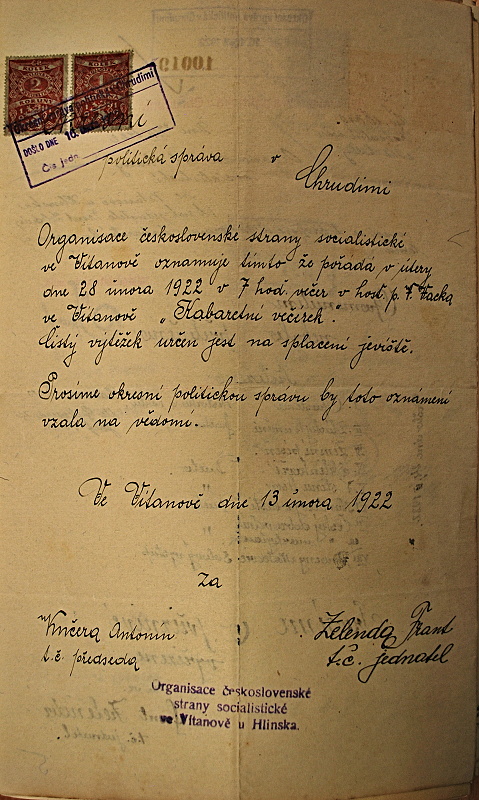 DOŠLO DNE 16.
Čís. jedn.
2
1
politická správa v Chrudimi
Organisace československé strany socialistické
ve Vítanově oznamuje tímto že pořádá v úterý
dne 28 února 1922 v 7 hod. večer v host. p. F. Vacka
ve Vítanově „Kabaretní večírek".
Čistý výtěžek určen jest na splacení jeviště.
Prosíme okresní politickou správu by toto oznámení
vzala na vědomí.
Ve Vítanově dne 13 února 1922
Za
Kučera Antonín
t.č. předseda
Zelenda Frant
t.č. jednatel
Organisace československé
strany socialistické
ve Vítanově u Hlinska.